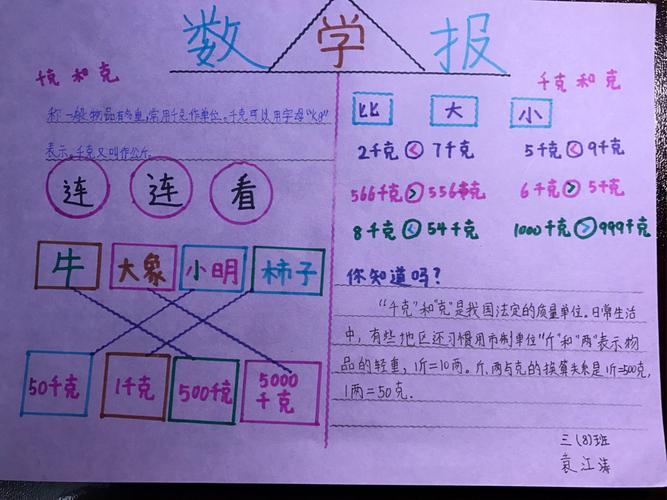 数学报
千克和克
称一般物品有多重,常用千克作单位。千克可以用字母"kg"
表示。千克又叫作公斤.
连连看
牛 大象 小明 柿子
50千克 1千克 500千克 5000千克
千克和克
比大小
2千克<7千克 5千克<9千克
566千克>556千克 6千克>5千克
8千克<54千克 1000千克>999千克
你知道吗?
"千克"和"克"是我国法定的质量单位.日常生活
中,有些地区还习惯用市制单位"斤"和"两"表示物
品的轻重,1斤=10两。斤、两与克的换算关系是1斤=500克,
1两=50克.
三(8)班
袁江涛